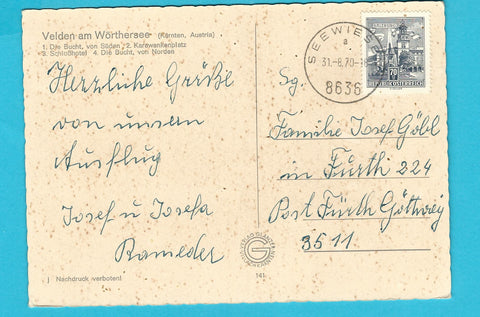 Velden am Wörthersee (Kärnten, Austria)
1. Die Bucht, von Süden 2. Karawankenplatz
3. Schloßhotel 4. Die Bucht, von Norden
Herzliche Grüße
von unsern
Ausflug
Josef u Josefa
Rameder
SEEWIESEN
a
31.-8.70-18
8636
REPUBLIK ÖSTERREICH
Sg.
Familie Josef Göbl
in Furth 224
Post Fürth Göttweig
3511
141
Nachdruck verboten!